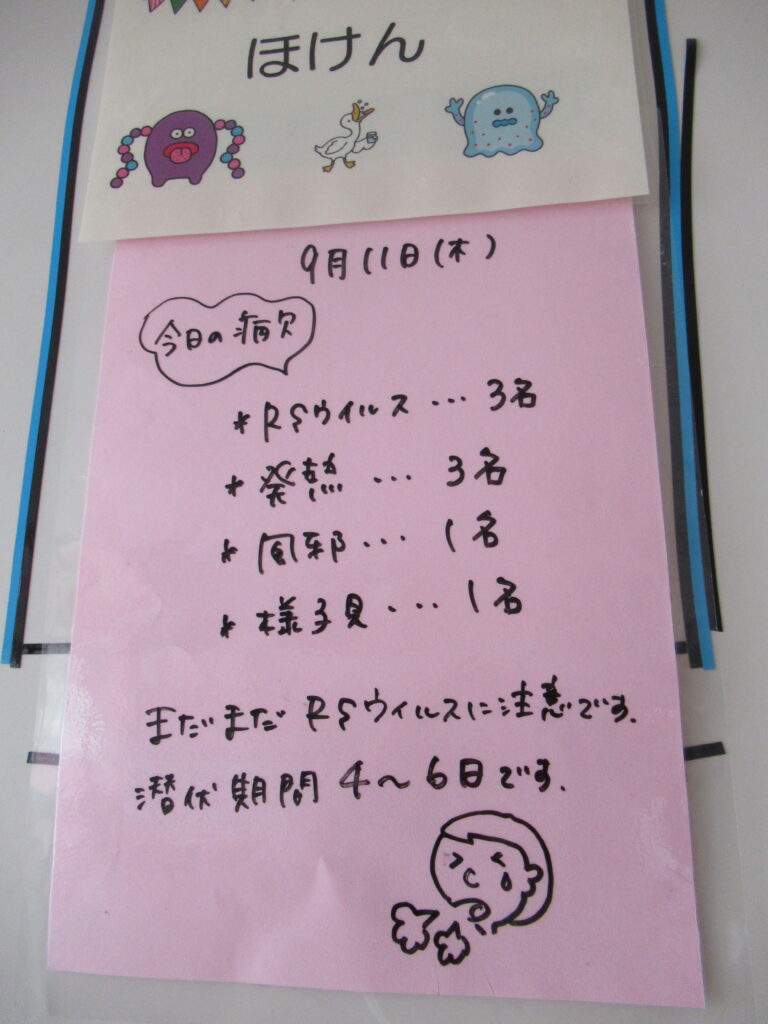 ほけん
9月11日(木)
今日の病欠
* RSウイルス … 3名
* 発熱 … 3名
* 風邪 … 1名
* 様子見 … 1名
まだまだ RSウィルスに注意です.
潜伏期間 4〜6日です.